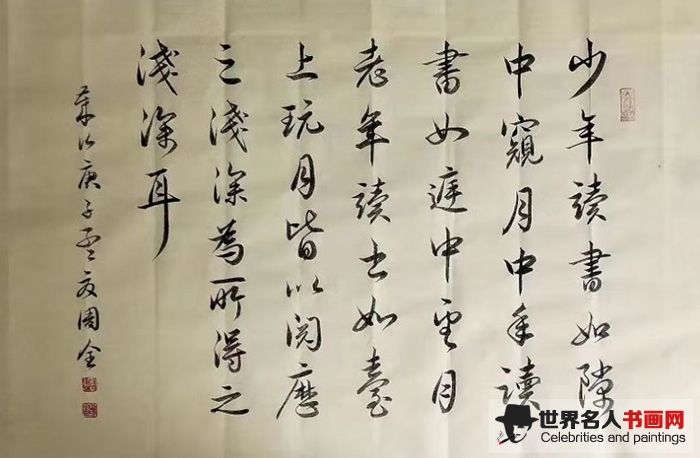 少年讀書如隙
中窺月中年讀
書如庭中望月
老年讀书如臺
上玩月皆以閱歷
之淺深為所得之
淺深耳
庚子孟夏周全
世界名人书画网
Celebrities and paintings